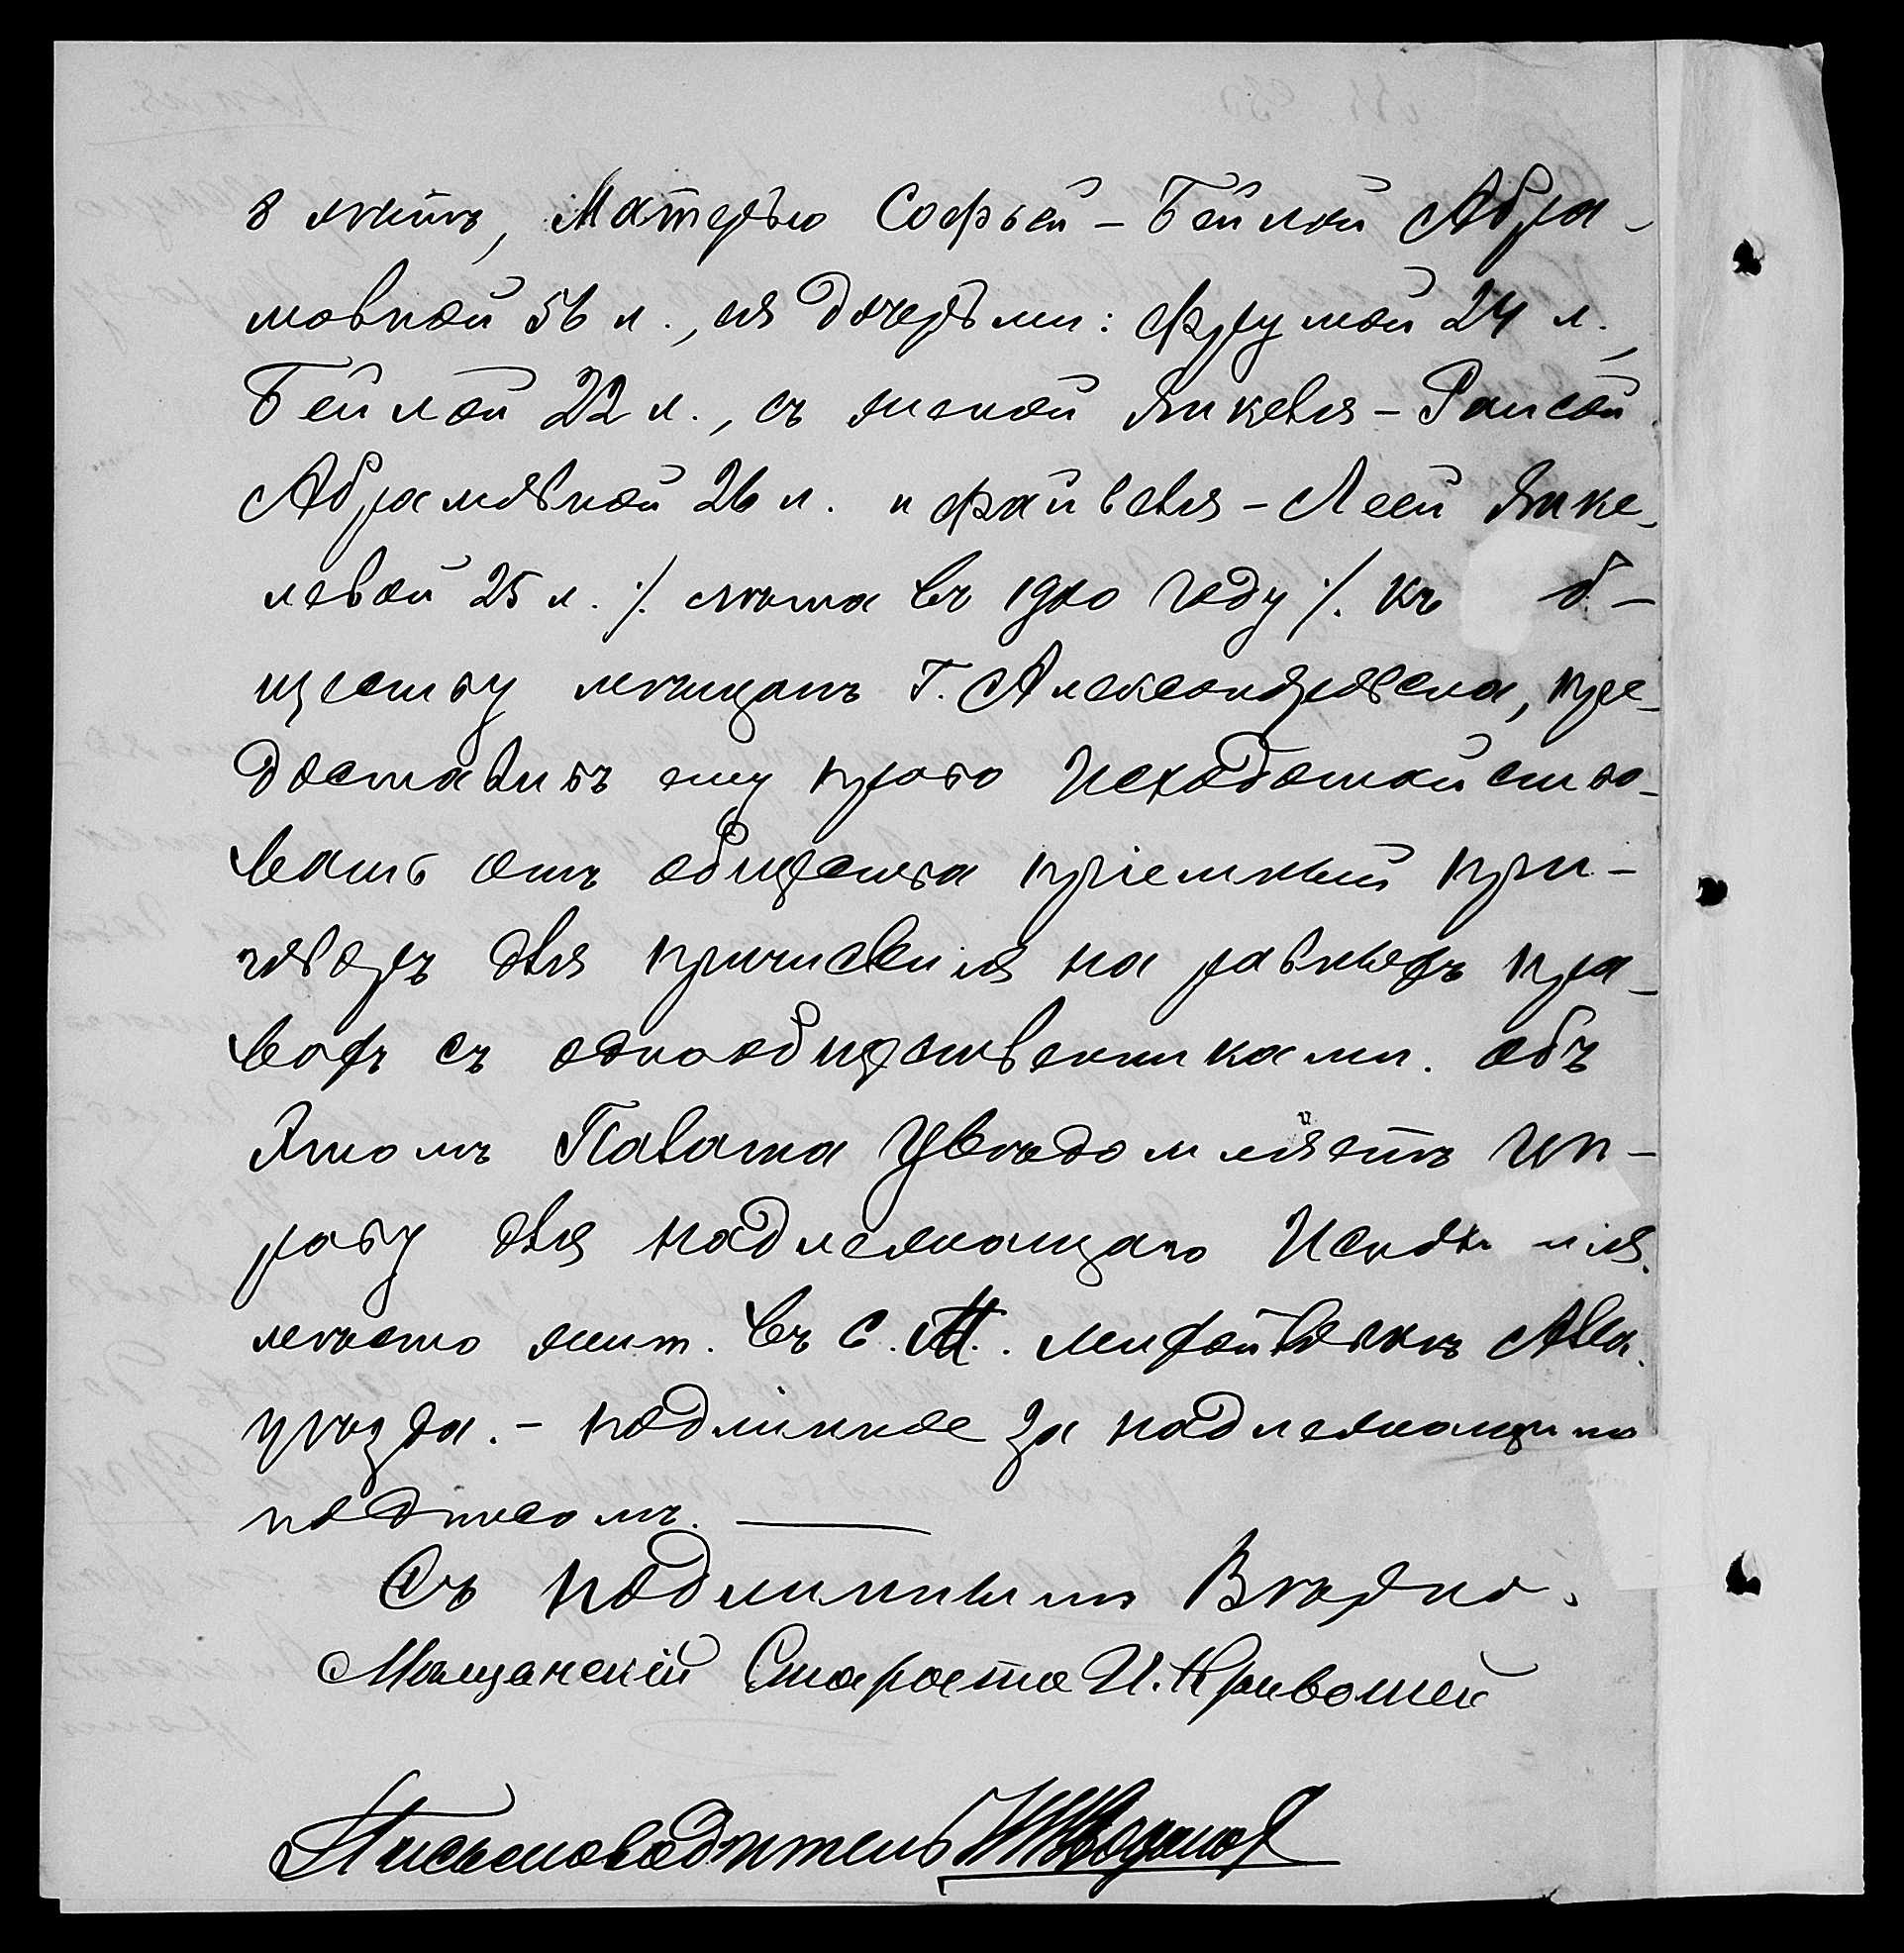 8 лѣтъ, Матерью Софьей-Бейлой Абра-
мовной 56 л., ея дочерьми: Фрумой 24 л.,
Бейлой 22 л., съ женой Янкеля-Раисой
Абрамовной 26 л. и Файвеля-Леей Янке-
левой 25 л. ./. лѣта въ 1900 году ./. къ б-
ществу мѣщанъ г. Александровска, пре-
доставить ему право исходотайство-
вать отъ общества пріемный при-
говоръ для причисленія на равныхъ пра-
вахъ съ однообщественниками. Объ
этомъ Палата увѣдомляетъ Уп-
раву для надлежащаго Испол нія.
мѣсто жит. въ с. М. Алек.
уѣзда. - подлинное за надлежащимъ
подписомъ.
Съ подлиннымъ Вѣрно.
Мѣщанскій Староста И. Кривошей
Письмоводитель